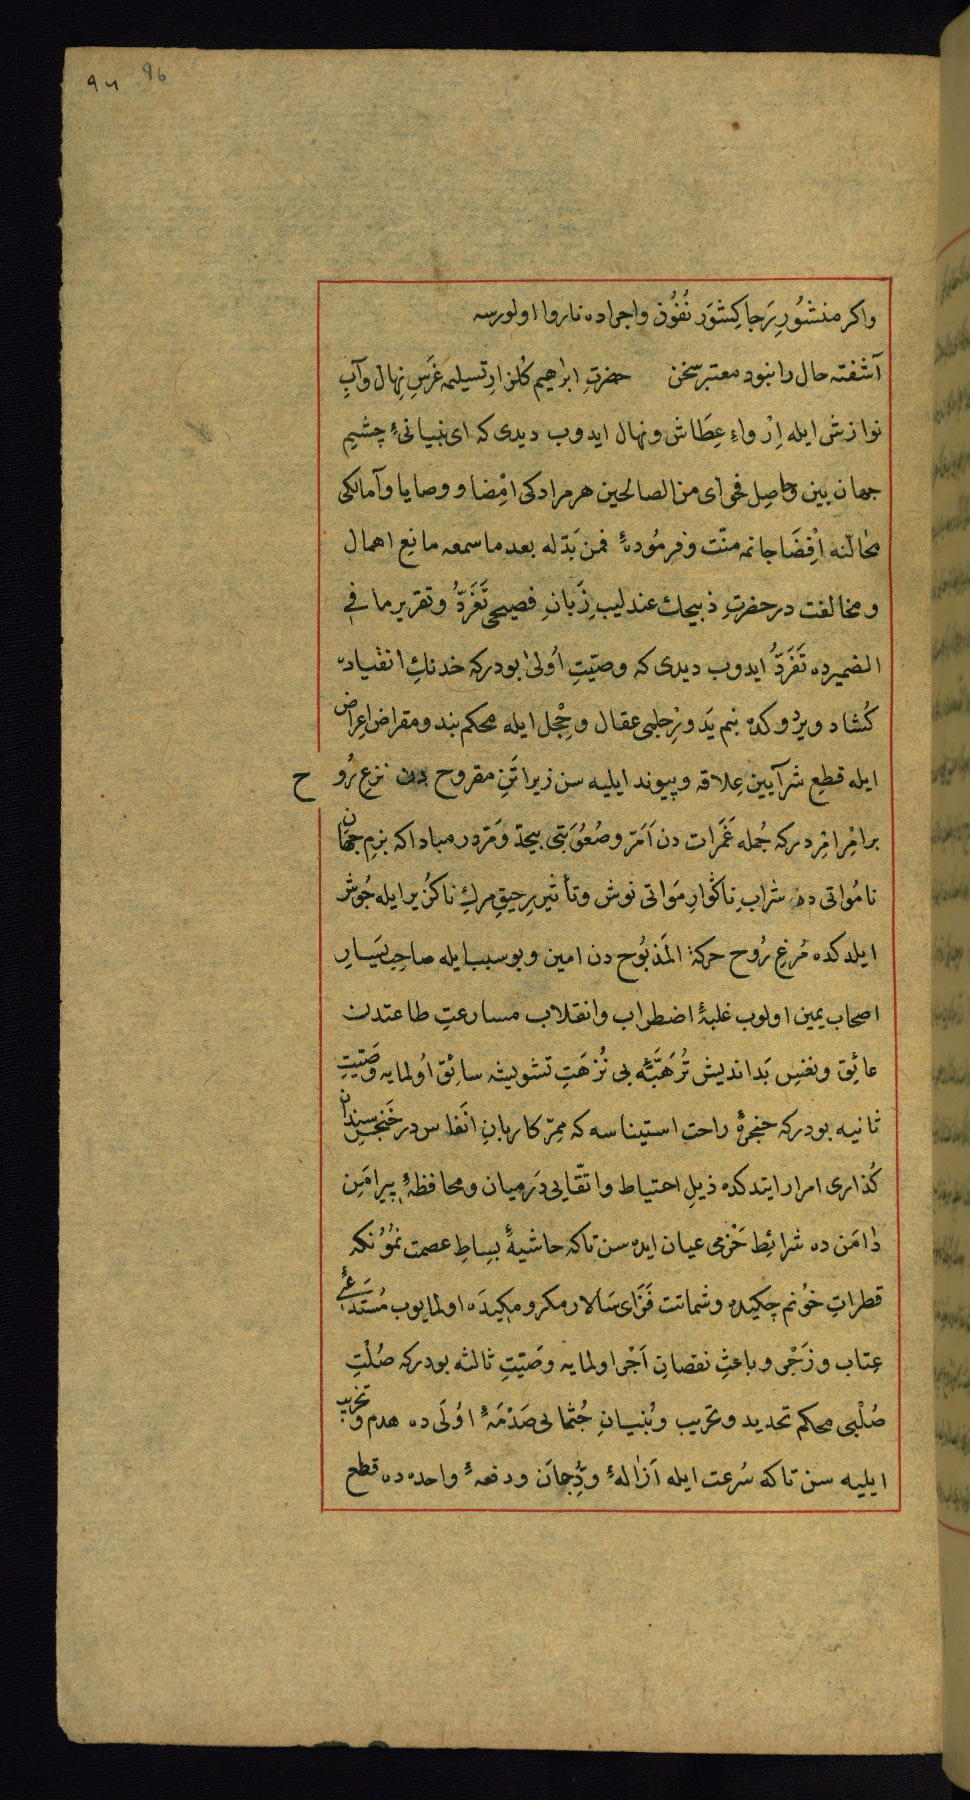 ٩٦ 96
واكر منشُورِ رَجا كِشوَر نُفُوْن واجراده ناروا اولورسه
آشفته حال را نبود معتبر سخن حضرتِ ابراهيم كلزارِ تسليمه غَرَسِ نِهال وآبِ
نوازش ايله اِرْواءِ عِطَاش ونهال ايدوب ديدى كه اى بنيانىِٔ چشيم
جهان بين وحاصِل فحواى من الصالحين هر مرادكى امْضا ووصايا وآمالكى
محالّنه اْفِضَا جانمه منّت وفرمُودهٔ فمن بَدّله بعد ما سمعه مانِعِ اهمال
ومخالفت در حضرتِ ذبيحك عندليبِ زَبانِ فصيحى تَغَرُّد وتقرير ما فى
الضميرده تَفَرُّد ايدوب ديدى كه وصيّتِ اُولىٰ بودركه خدنكِ انقياد
كُشاد ويردوكده بنم يَد ورِجلمى عقال وحِجْل ايله محكم بند ومقراضِ اِعراض
ايله قطعِ شرآيينِ عِلاقه وپيوند ايليه سن زيرا تَنِ مقروح دن نزعِ رُو ح
بر امْرِ امَرّ دركه جُمله غَمَرات دن اَمَرّ وصُعُوبَتى بيحدّ ومَرّ در مبادا كه بزمِ جهان
نامُواتى ده شرابِ ناكْوارِ مَواتى نوش وتأثيرِ رحيقِ مركِ ناكُزير ايله جُوش
ايلدكده مُرغِ رُوح حركة المَذبُوح دن امين وبو سبب ايله صاحِبِ يَسَارِ
اصحاب يمين اولوب غلبهٔ اضطراب وانقلاب مسارعتِ طاعتدن
عائِق ونفسِ بَد انديش تُرَهَّبَه بى نُزهَتِ تشويشه سائِق اُولمايه وَصيّتِ
ثانيه بودركه حنجرهٔ راحت استيناسه كه ممرّ كاربانِ انْفاس در خَنجَرِ سندان
كُذارى امرار ايتدكده ذيلِ احتياط واتّقايى دَرميان ومحافظهٔ پيرامَن
دٰامَن ده شرائِط حَزْمى عيان ايده سن تاكه حاشيهٔ بِساطِ عصمت نمُوْنكه
قطراتِ خوُنم چكيده وشماتت فَزَاى سَالار مكر ومكيدَه اولمايوب مُستدعئ
عِتاب وزَجْر وباعثِ نقصانِ اَجْر اولمايه وَصيّتِ ثالثه بودركه صُلْتِ
صُلْبى محكم تحديد وتخريب وبُنيانِ جُثمانى صَدْمَهٔ اوُلَى ده هدم وتخريب
ايليه سن تاكه سُرعت ايله اَزالهٔ ودِّ جان ودفعهٔ واحده ده قطع